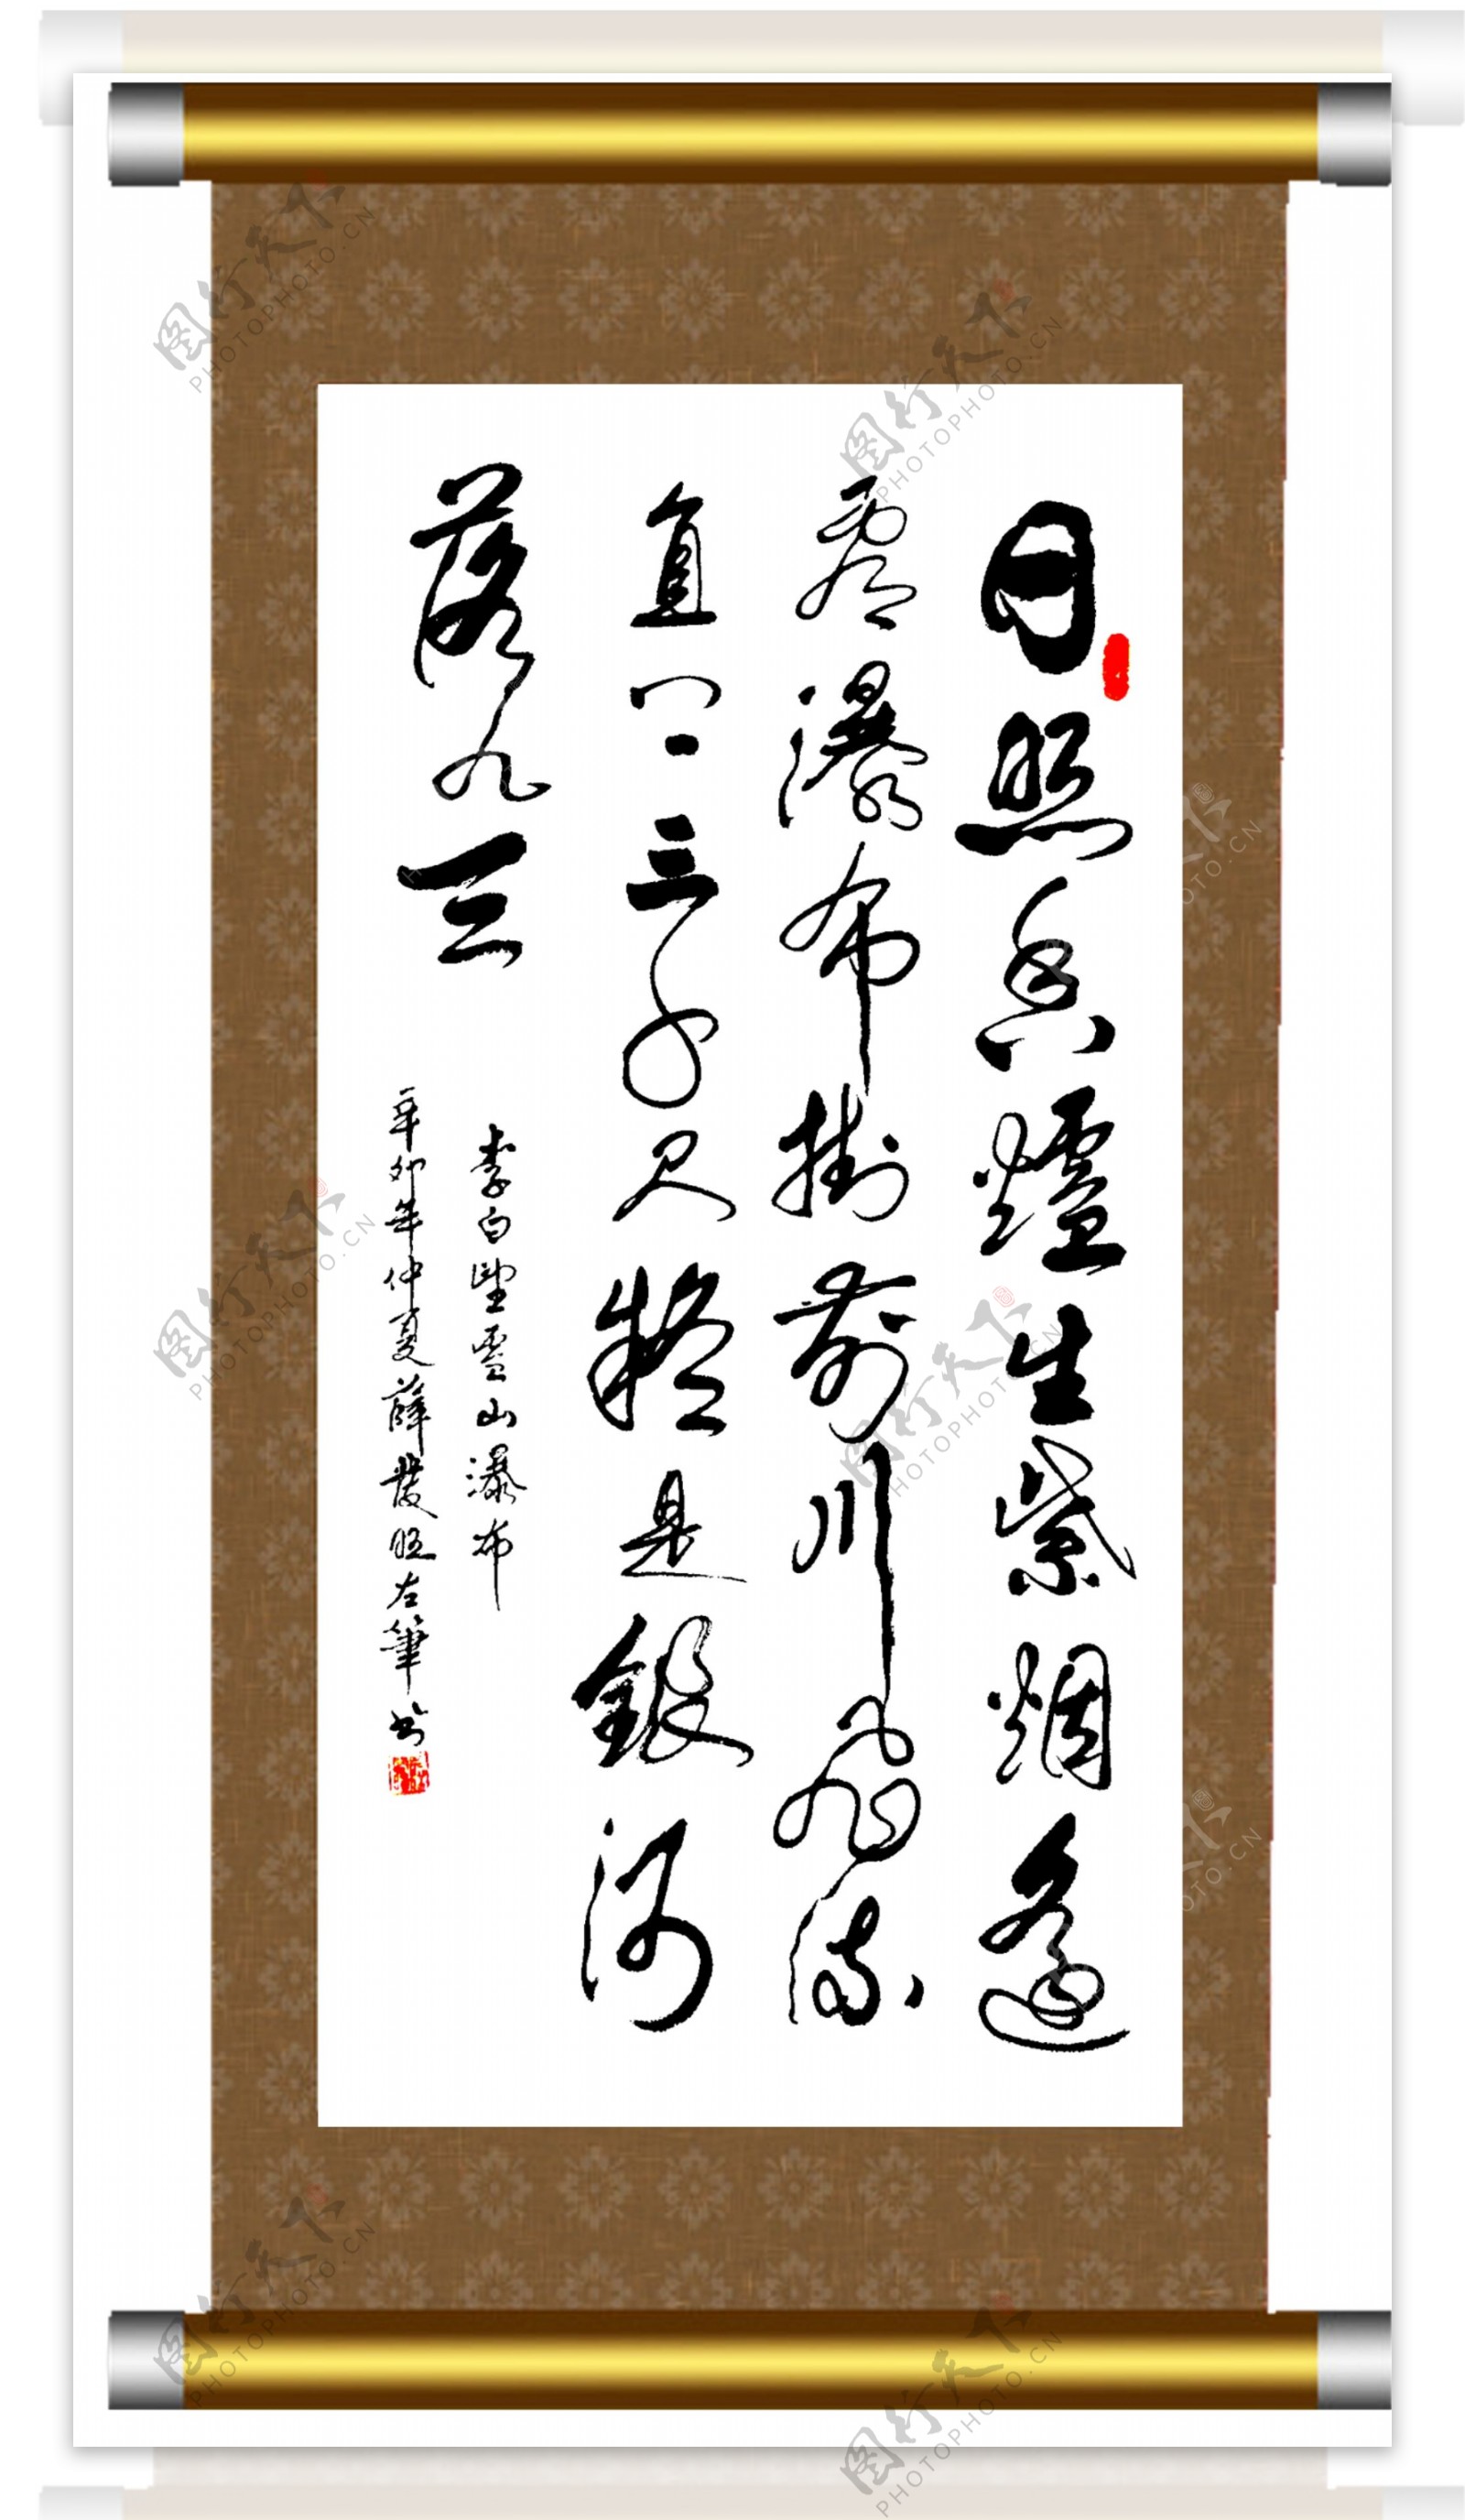 日照香爐生紫烟遙
看瀑布掛前川飛流
直下三千尺疑是銀河
落九天
李白望廬山瀑布
辛卯年仲夏薛發旺左筆書
图行天下
PHOTOPHOTO.CN